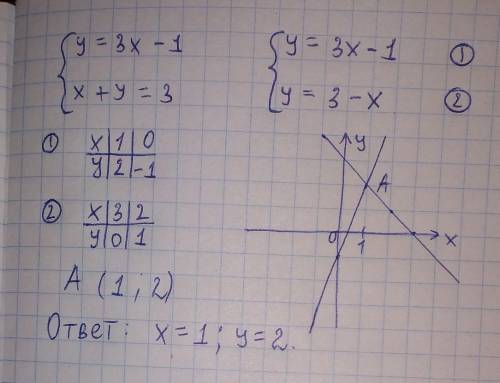 y = 3x - 1
x + y = 3
y = 3x - 1 ①
y = 3 - x ②
① x | 1 | 0
y | 2 | -1
② x | 3 | 2
y | 0 | 1
y
A
0 1 x
A (1 ; 2)
Ответ: x = 1 ; y = 2.